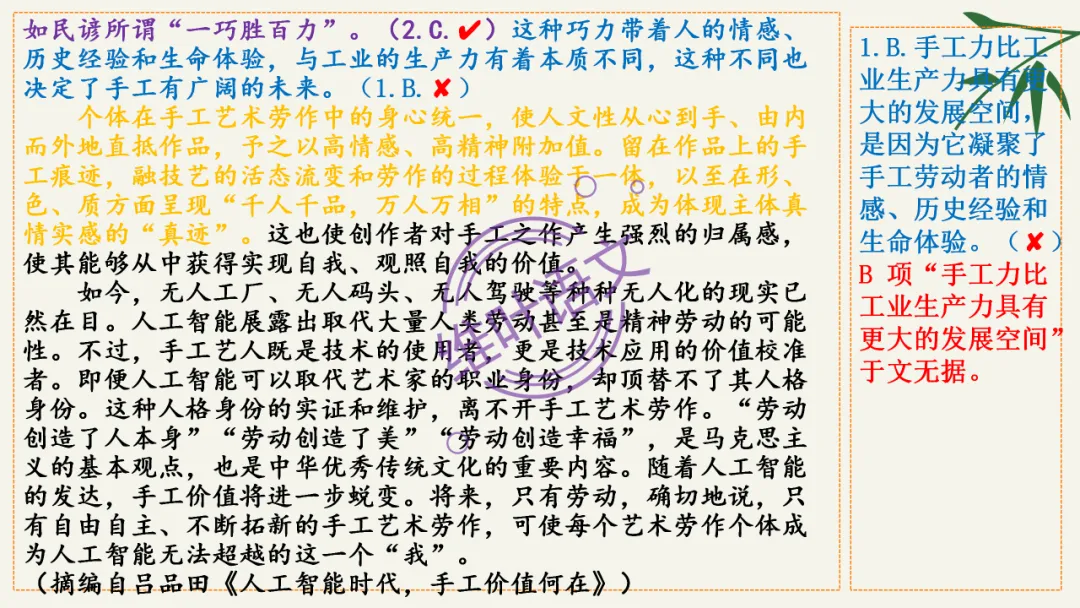 如民谚所谓“一巧胜百力”。（2.C.✔）这种巧力带着人的情感、
历史经验和生命体验，与工业的生产力有着本质不同，这种不同也
决定了手工有广阔的未来。（1.B.✘）
个体在手工艺术劳作中的身心统一，使人文性从心到手、由内
而外地直抵作品，予之以高情感、高精神附加值。留在作品上的手
工痕迹，融技艺的活态流变和劳作的过程体验于一体，以至在形、
色、质方面呈现“千人千品，万人万相”的特点，成为体现主体真
情实感的“真迹”。这也使创作者对手工之作产生强烈的归属感，
使其能够从中获得实现自我、观照自我的价值。
如今，无人工厂、无人码头、无人驾驶等种种无人化的现实已
然在目。人工智能展露出取代大量人类劳动甚至是精神劳动的可能
性。不过，手工艺人既是技术的使用者，更是技术应用的价值校准
者。即便人工智能可以取代艺术家的职业身份，却顶替不了其人格
身份。这种人格身份的实证和维护，离不开手工艺术劳作。“劳动
创造了人本身”“劳动创造了美”“劳动创造幸福”，是马克思主
义的基本观点，也是中华优秀传统文化的重要内容。随着人工智能
的发达，手工价值将进一步蜕变。将来，只有劳动，确切地说，只
有自由自主、不断拓新的手工艺术劳作，可使每个艺术劳作个体成
为人工智能无法超越的这一个“我”。
（摘编自吕品田《人工智能时代，手工价值何在》）
1.B.手工力比工
业生产力具有更
大的发展空间，
是因为它凝聚了
手工劳动者的情
感、历史经验和
生命体验。（✘）
B 项“手工力比
工业生产力具有
更大的发展空间”
于文无据。